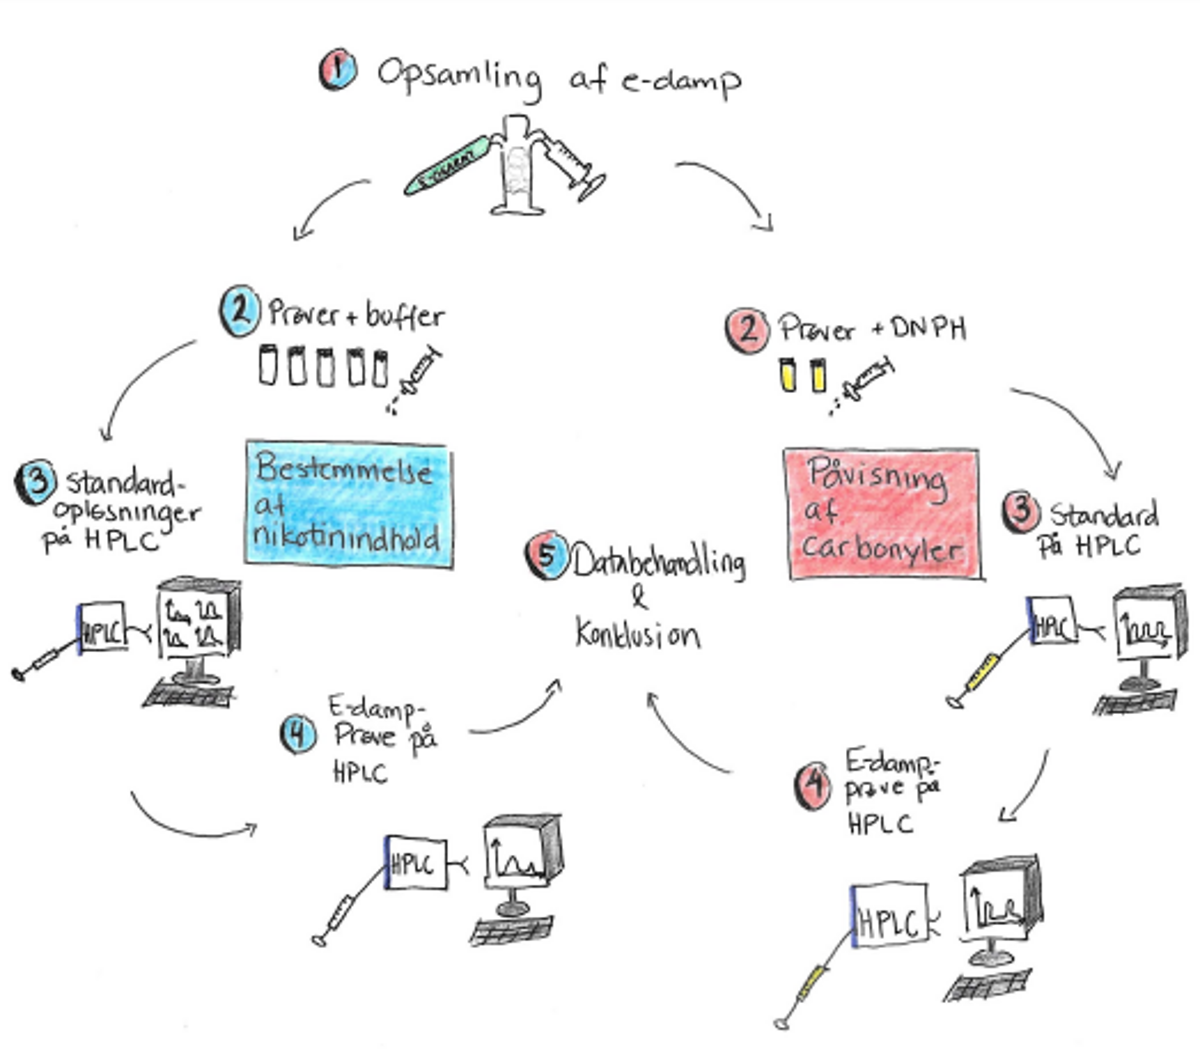 1 Opsamling af e-damp
E-CIGARET
2 Prøver + buffer
2 Prøver + DNPH
Bestemmelse
af
nikotinindhold
Påvisning
af
carbonyler
3 Standard-
opløsninger
på HPLC
HPLC
3 Standard
på HPLC
HPLC
5 Databehandling
&
Konklusion
4 E-damp-
Prøve på
HPLC
HPLC
4 E-damp-
prøve på
HPLC
HPLC